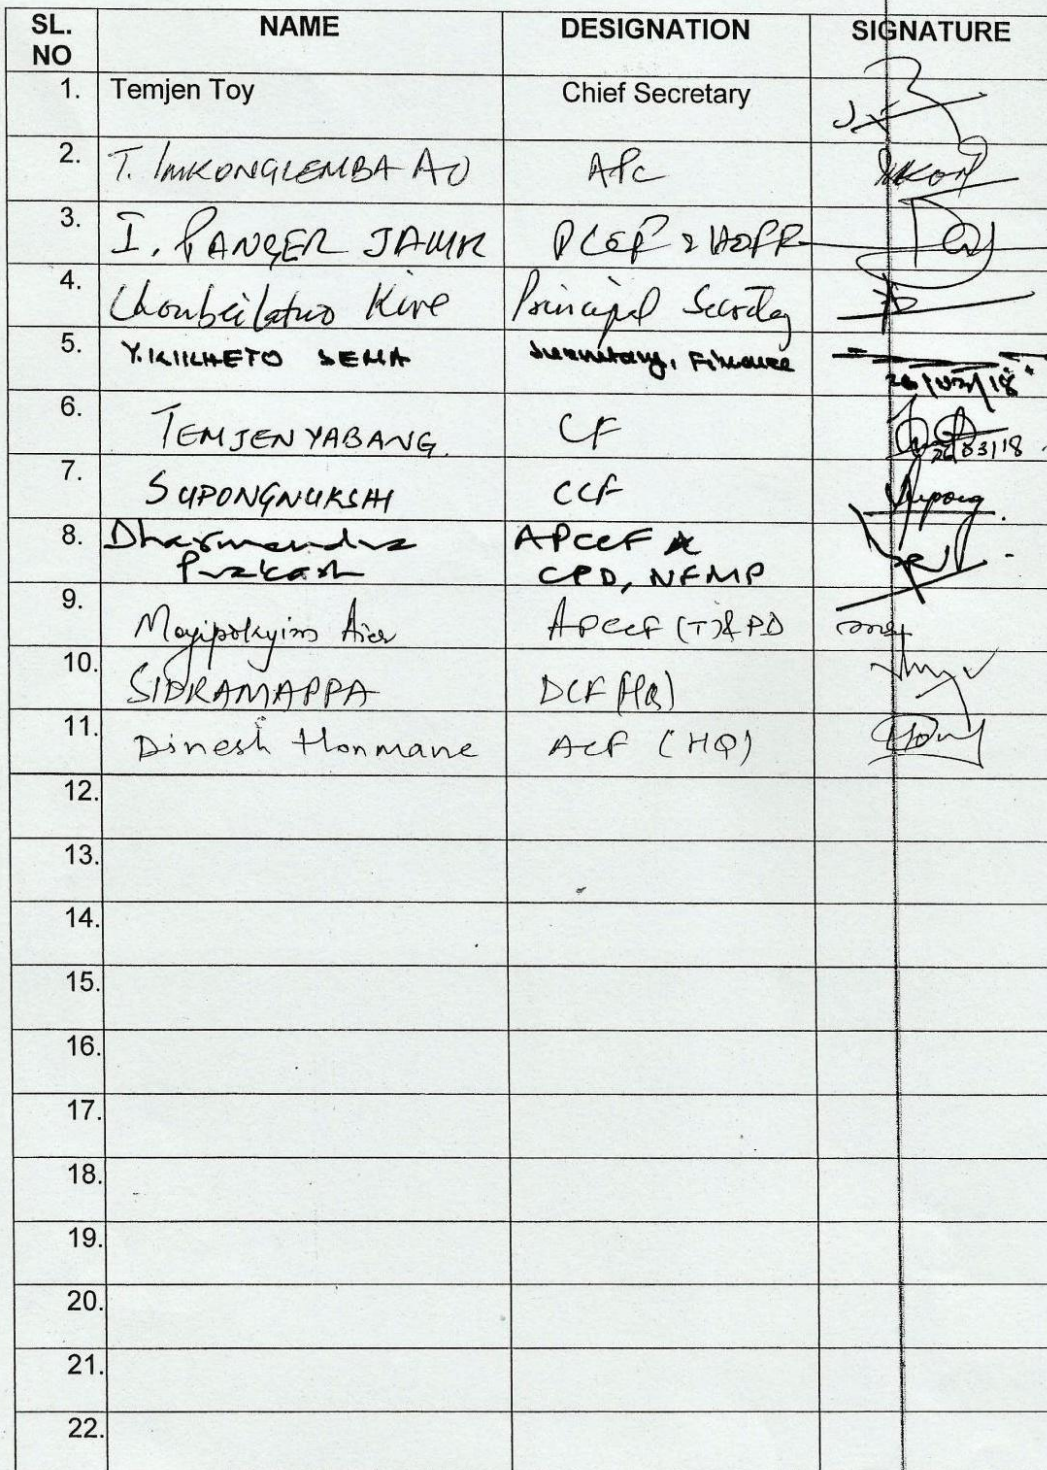 SL. NO NAME DESIGNATION SIGNATURE
1. Temjen Toy Chief Secretary
2. T. IMKONGLEMBA AO APC
3. I. PANGER JAMIR PCCF & HOFF
4. Kire Principal Secretary
5. Y. KIKHETO SEMA Secretary, Finance
26/03/18
6. TEMJENYABANG. CF
26/03/18
7. SUPONGNUKSHI CCF Supong
8. Dharmendra Prakash APCCF & CPD, NFMP
9. Moyipokyim Aier APCCF (T) & PD
10. SIDRAMAPPA DCF (HQ)
11. Dinesh Honmane ACF (HQ)
12.
13.
14.
15.
16.
17.
18.
19.
20.
21.
22.